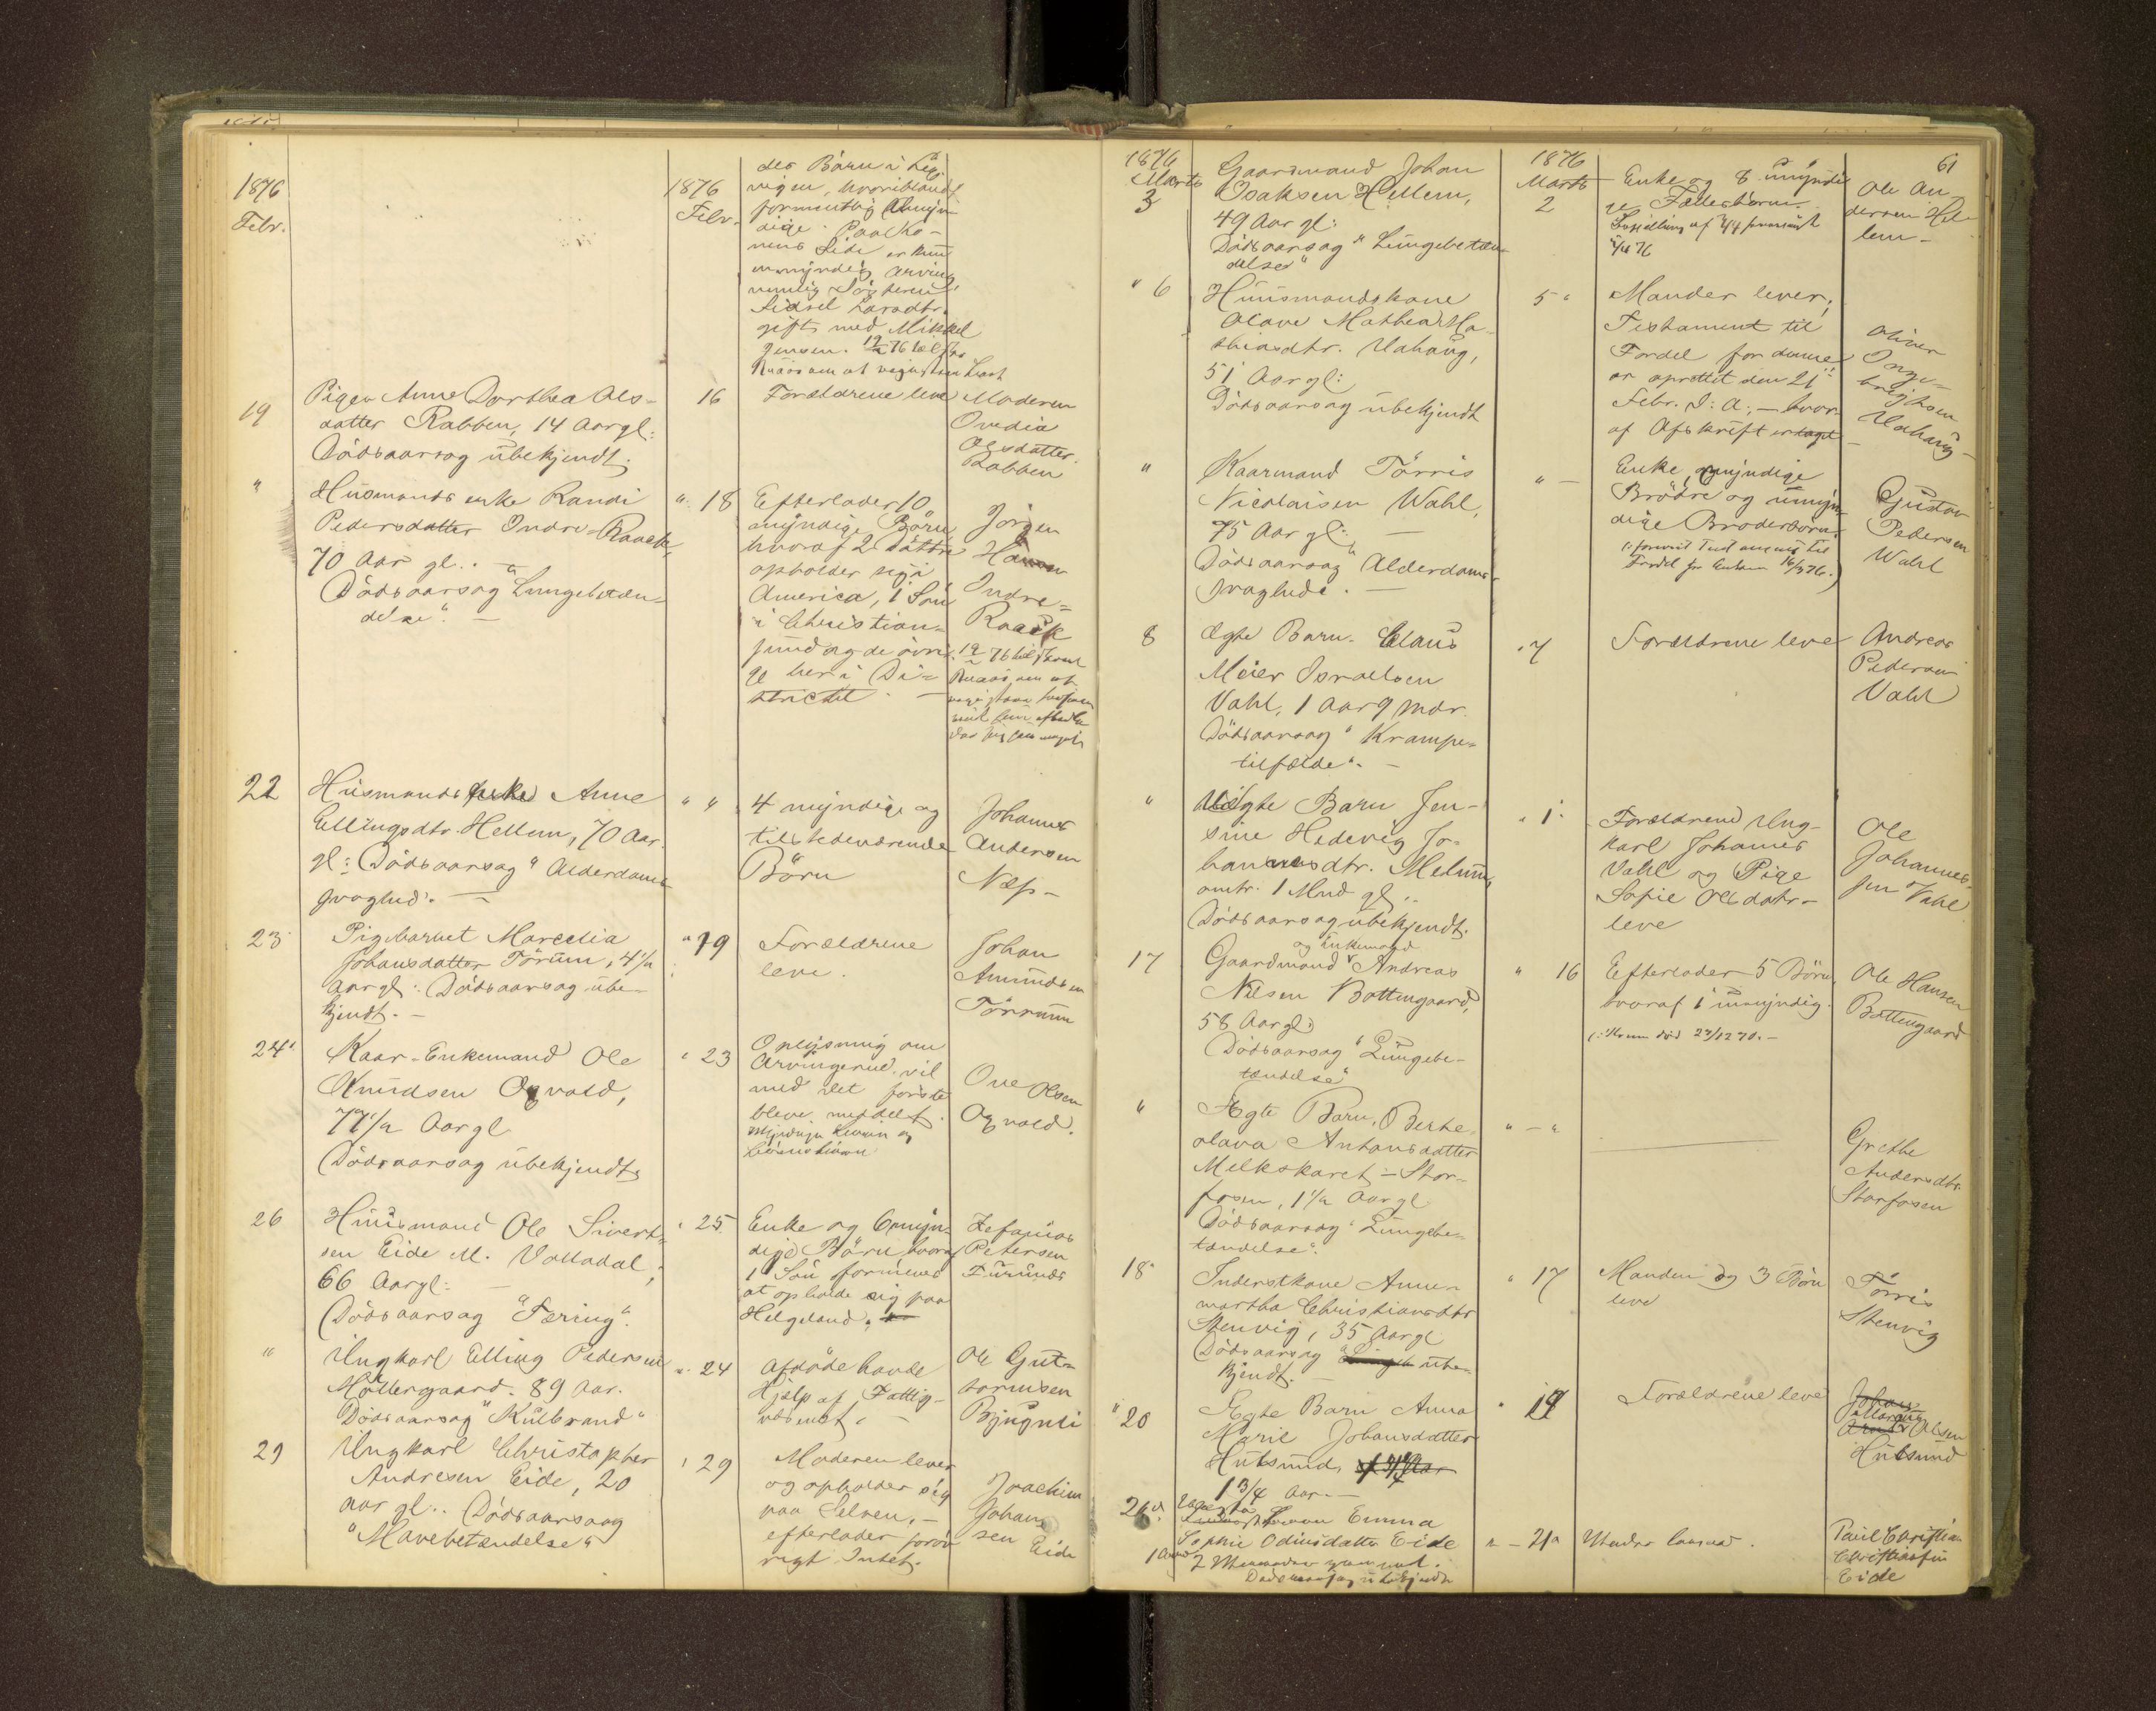 1876
Febr.
1876
Febr.
des Børn i Leg
vigen, hvoriblandt
formentlig Umyn
dige. Paa Ko-
nens Side er kun
en myndig Arving
nemlig Søsteren
gift med Mikkel
Jensen.
19
Pigen Anne Dorthea Ols-
datter Rabben, 14 Aar gl:
Dødsaarsag übekjendt.
16
Forældrene leve
Moderen
Ovedia
Olsdatter
Rabben
"
Husmands enke Randi
Pedersdatter Indre-Raaek,
70 Aar gl..
Dødsaarsag "Lungebetæn-
delse". —
" 18
Efterlader 10
myndige Børn
hvoraf 2 Døttre
opholder sig i
America, 1 Søn
i Christian-
sund og de øvri-
ge her i Di-
strictet. —
Jørgen
Indre-
Raaek
22
Husmands enke Anne
Ellingsdtr. Hellem, 70 Aar
gl: Dødsaarsag "Alderdoms
svaghed". —
" "
4 myndige og
tilstedeværende
Børn
Johannes
Andersen
Næs-
23
Pigebarnet Marcelia
Johansdatter Tørüm, 4 1/2
Aar gl: Dødsaarsag übe-
kjendt. —
" 19
Forældrene
leve.
Johan
Amündsen
Tørrüm
24
Kaar-Enkemand Ole
Knüdsen Opvold,
77 1/2 Aar gl
Dødsaarsag übekjendt
" 23
Oplysning om
Arvingerne vil
med det første
bleve meddelt.
Ove Olsen
Opvold.
26
Hüüsmand Ole Sivert-
sen Eide M. Valladal,
66 Aar gl: —
Dødsaarsag "Tæring".
" 25
Enke og 6 myn-
dige Børn, hvoraf
1 Søn formenes
at opholde sig paa
Helgeland.
Zefanias
Petersen
"
Ungkarl Elling Pedersen
Møllergaard. 89 Aar.
Dødsaarsag "Kulbrand"
" 24
Afdøde havde
Hjælp af Fattig-
væsenet. —
Ole Gut-
tormsen
Bjugnli
29
Ungkarl Christopher
Andresen Eide, 20
Aar gl.. Dødsaarsag
"Mavebetændelse"
" 29
Moderen lever
og opholder sig
paa Selven, —
efterlader forøv
rigt Intet.
Joachim
Johan
sen Eide
61
1876
Marts
3
Gaardmand Johan
Isaksen Hellem,
49 Aar gl:
Dødsaarsag "Lüngebetæn-
delse"
1876
Marts
2
Enke og 8 umyndi
ge Fællesbørn.
Ole An
dersen Hel-
lem-
" 6
Hüüsmandskone
Olave Mathea Ma-
thiasdtr. Uahaüg,
51 Aar gl:
Dødsaarsag übekjendt
5 "
Manden lever;
Testament til
Fordel for denne
er oprettet den 21
Febr. d: A:, — hvor-
af Afskrift er taget
Oliver
Inge-
brigtsen
Uahaüg
"
Kaarmand Tørris
Nicolaisen Wahl,
75 Aar gl: —
Dødsaarsag "Alderdoms-
svaghed". —
" —
Enke, myndige
Brødre og ümyn-
dige Broderbørn.
Gustav
Pedersen
Wahl
8
Ægte Barn Claus
Meier Israelsen
Vahl, 1 Aar 9 Mdr.
Dødsaarsag "Krampe-
tilfælde". —
" 7
Forældrene leve
Andreas
Pedersen
Vahl
"
Uægte Barn Jen-
sine Hedevig Jo-
hannesdtr. Melüm,
omtr. 1 Mnd gl..
Dødsaarsag übekjendt.
" 1
Forældrene Ung-
karl Johannes
Vahl og Pige
Sofie Olsdatr-
leve
Ole
Johannes-
sen Vahl
17
og Enkemand
Gaardmand Andreas
Nilsen Bottengaard,
58 Aar gl:
Dødsaarsag "Lüngebe-
tændelse"
" 16
Efterlader 5 Børn,
hvoraf 1 ümyndig.
(: Konen død 27/12 70. —
Ole Hansen
Bottengaard
"
Ægte Barn, Berthe
Olava Antonsdatter
Melkskaret - Stor-
fosen, 1 1/2 Aar gl
Dødsaarsag "Lüngebe-
tændelse".
" — "
Grethe
Andersdtr
Storfosen
18
Inderstkone Anne
Martha Christiansdtr
Stenvig, 35 Aar gl
Dødsaarsag übe-
kjendt. —
" 17
Manden og 3 Børn
leve
Tørris
Stenvig
" 20
Ægte Barn Anna
Marie Johansdatter
Hütsund,
1 3/4 Aar. —
" 19
Forældrene leve
Olsen
Hütsund
26
Emma
Sophie Odinsdatter Eide
2 Maaneder gammel.
Dødsaarsag übekjendt
" — 21
Paul Christian
Christiansen
Eide